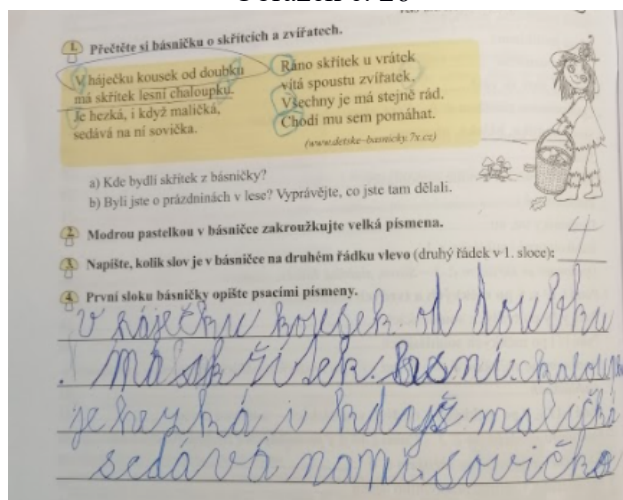 1. Přečtěte si básničku o skřítcích a zvířatech.
V háječku kousek od doubku
má skřítek lesní chaloupku.
Je hezká, i když maličká,
sedává na ní sovička.
Ráno skřítek u vrátek
vítá spoustu zvířátek.
Všechny je má stejně rád.
Chodí mu sem pomáhat.
(www.detske-basnicky.7x.cz)
a) Kde bydlí skřítek z básničky?
b) Byli jste o prázdninách v lese? Vyprávějte, co jste tam dělali.
2. Modrou pastelkou v básničce zakroužkujte velká písmena.
3. Napište, kolik slov je v básničce na druhém řádku vlevo (druhý řádek v 1. sloce): 4
4. První sloku básničky opište psacími písmeny.
v háječku kousek od doubku
má skřítek lesní chaloupku
je hezká i když maličká
sedává sovička